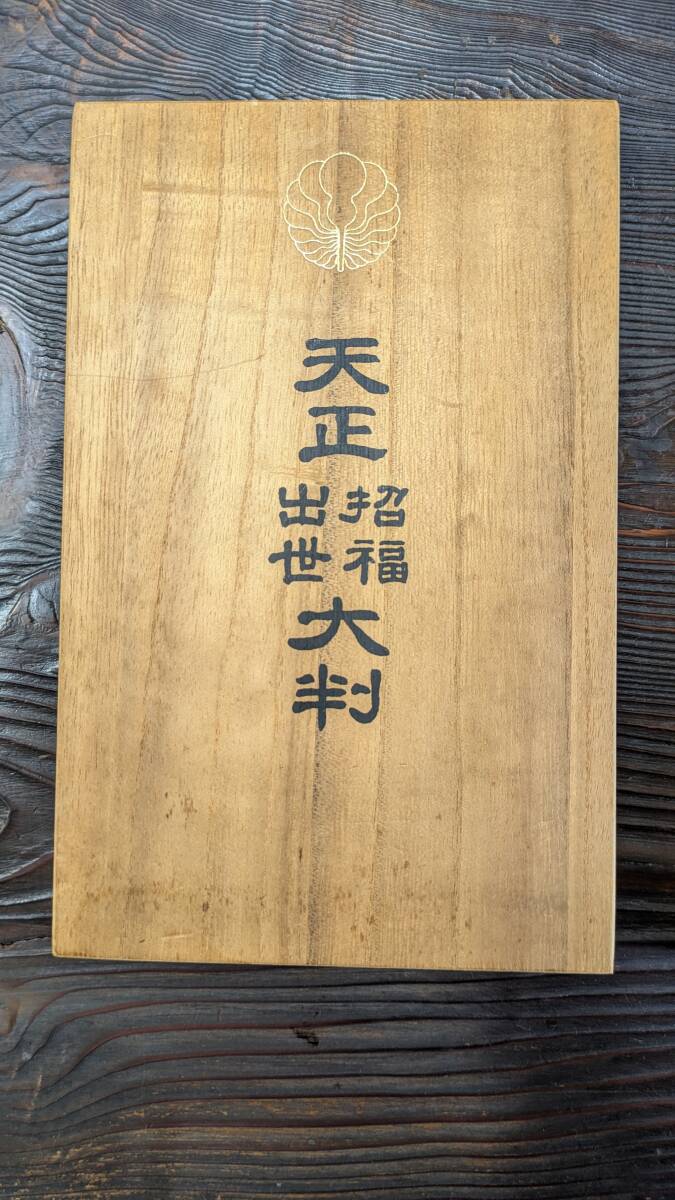 天正
招福
出世
大判